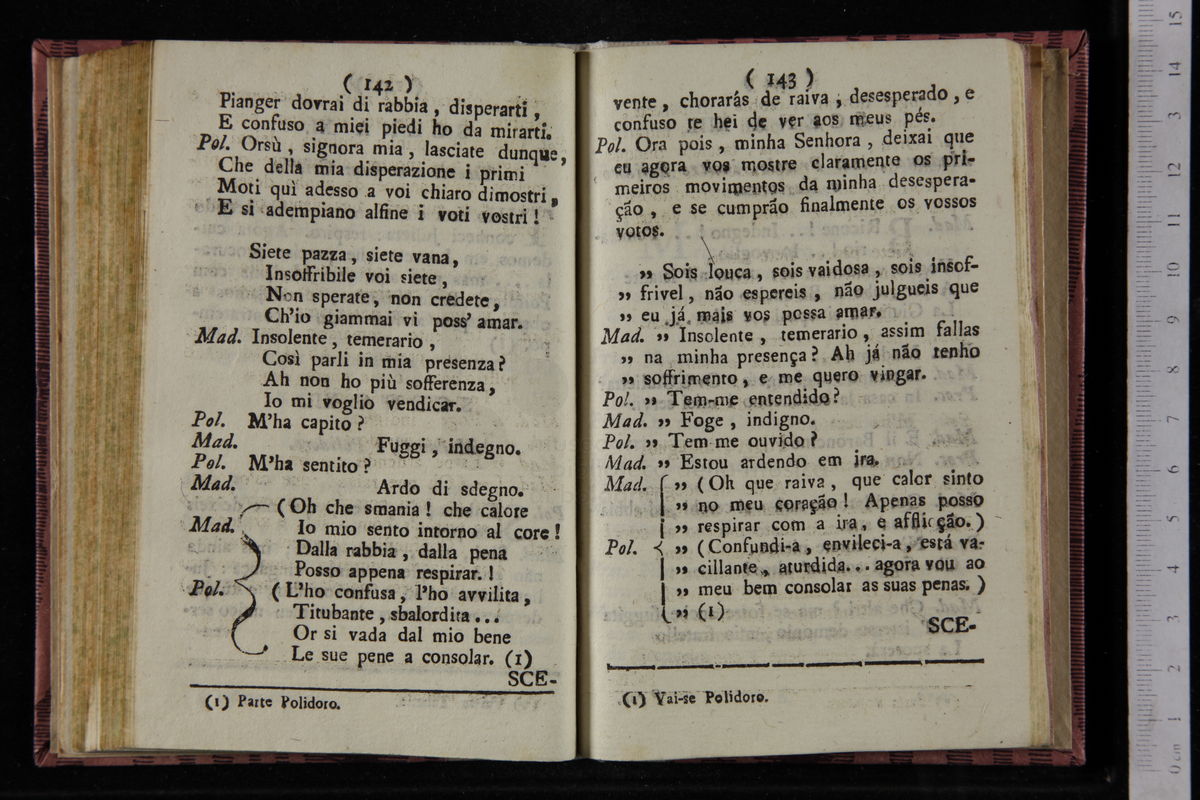 ( 142 )
Pianger dovrai di rabbia , disperarti ,
E confuso a miei piedi ho da mirarti.
Pol. Orsù , signora mia , lasciate dunque,
Che della mia disperazione i primi
Moti quì adesso a voi chiaro dimostri ,
E si adempiano alfine i voti vostri !
Siete pazza , siete vana ,
Insoffribile voi siete ,
Non sperate , non credete ,
Ch'io giammai vi poss' amar.
Mad. Insolente , temerario ,
Così parli in mia presenza ?
Ah non ho più sofferenza ,
Io mi voglio vendicar.
Pol. M'ha capito ?
Mad. Fuggi , indegno.
Pol. M'ha sentito ?
Mad. Ardo di sdegno.
( Oh che smania ! che calore
Mad. Io mio sento intorno al core !
Dalla rabbia , dalla pena
Posso appena respirar. !
Pol. ( L'ho confusa , l'ho avvilita ,
Titubante , sbalordita ...
Or si vada dal mio bene
Le sue pene a consolar. (1)
SCE-
(1) Parte Polidoro.
( 143 )
vente , chorarás de raiva , desesperado , e
confuso te hei de ver aos meus pés.
Pol. Ora pois , minha Senhora , deixai que
eu agora vos mostre claramente os pri-
meiros movimentos da minha desespera-
ção , e se cumprão finalmente os vossos
votos.
,, Sois louca , sois vaidosa , sois insof-
,, frivel , não espereis , não julgueis que
,, eu já mais vos possa amar.
Mad. ,, Insolente , temerario , assim fallas
,, na minha presença ? Ah já não tenho
,, soffrimento , e me quero vingar.
Pol. ,, Tem-me entendido ?
Mad. ,, Foge , indigno.
Pol. ,, Tem me ouvido ?
Mad. ,, Estou ardendo em ira.
Mad. ,, ( Oh que raiva , que calor sinto
,, no meu coração ! Apenas posso
,, respirar com a ira , e afflicção. )
Pol. ,, ( Confundi-a , envileci-a , está va-
,, cillante , aturdida... agora vou ao
,, meu bem consolar as suas penas. )
,, (1)
SCE-
(1) Vai-se Polidoro.
0 cm 1 2 3 4 5 6 7 8 9 10 11 12 13 14 15